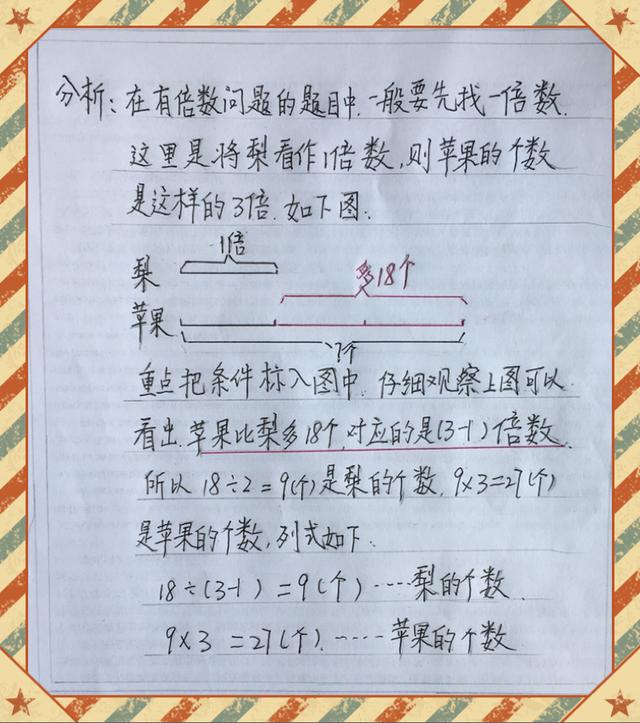 分析:在有倍数问题的题目中,一般要先找一倍数.
这里是将梨看作1倍数,则苹果的个数
是这样的3倍.如下图.
1倍
梨
多18个
苹果
?个
重点把条件标入图中.仔细观察上图可以
看出,苹果比梨多18个,对应的是(3-1)倍数.
所以18÷2=9(个)是梨的个数,9×3=27(个)
是苹果的个数,列式如下.
18÷(3-1)=9(个)····梨的个数.
9×3=27(个).·····苹果的个数